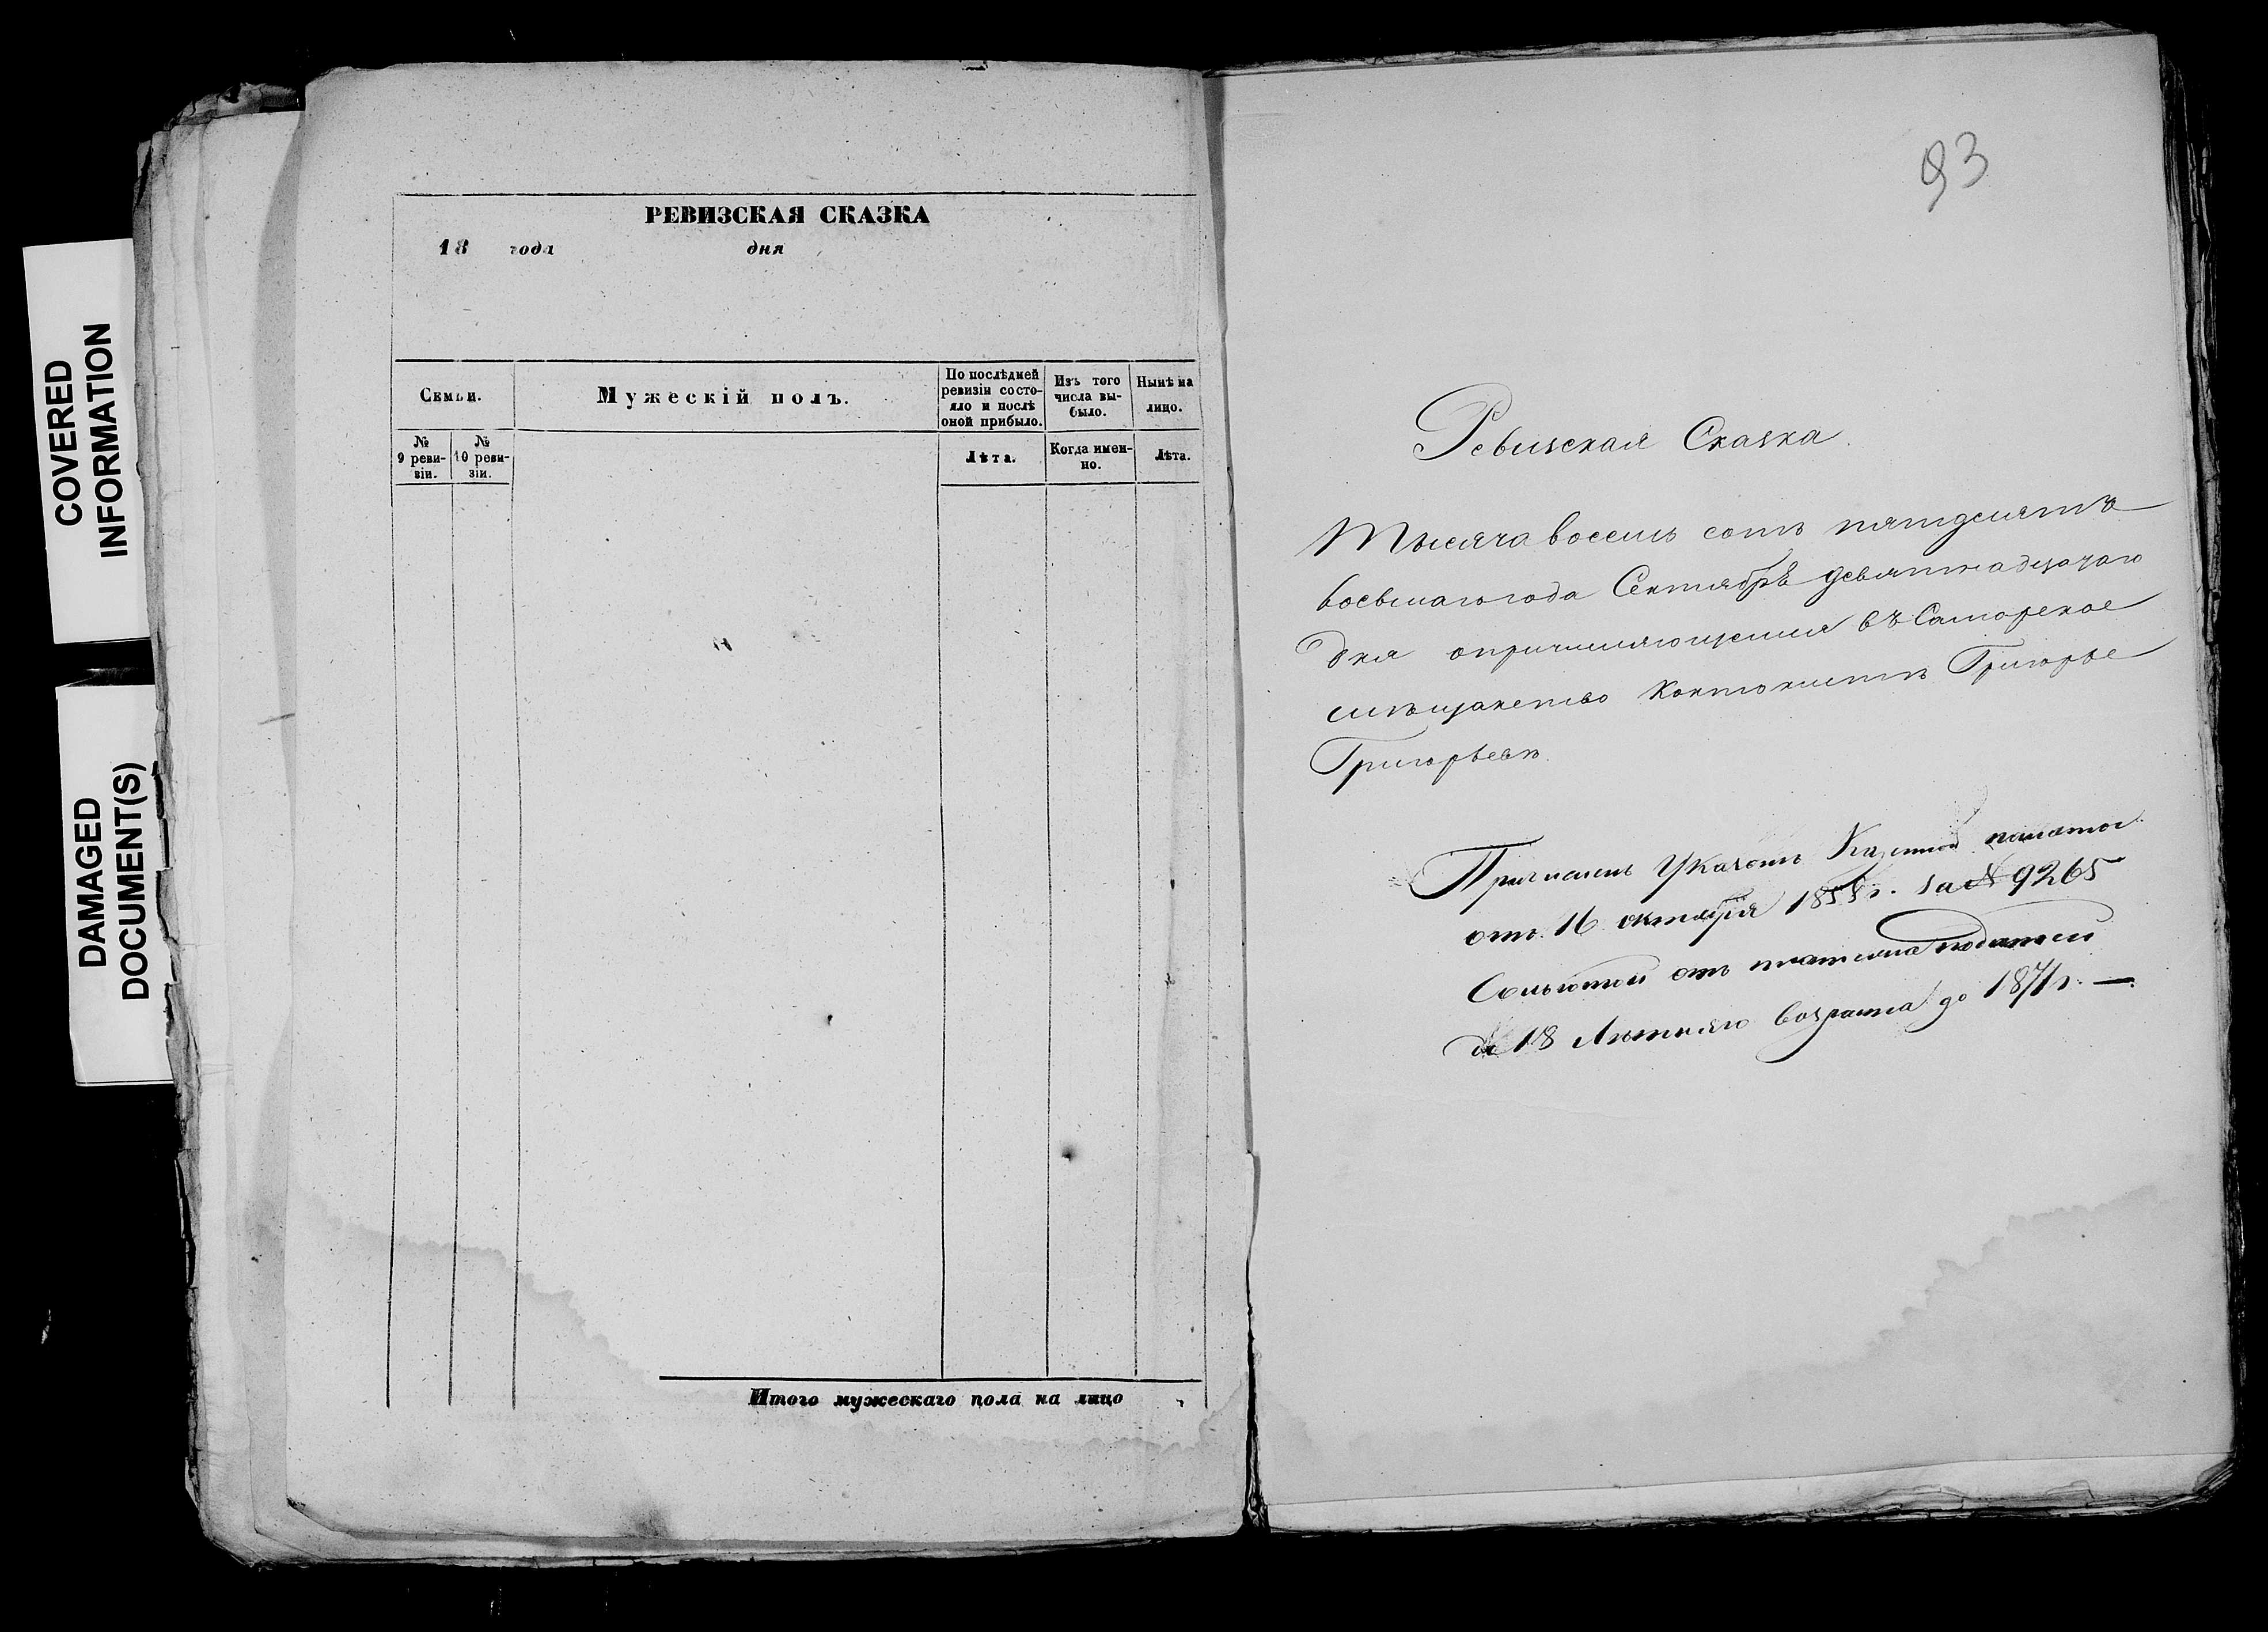 COVERED
INFORMATION
DAMAGED
DOCUMENT(S)
РЕВИЗСКАЯ СКАЗКА
18 года дня
Семьи.
Мужескій полъ.
По послѣдней
ревизіи состо-
яло и послѣ
оной прибыло.
Изъ того
числа вы-
было.
Нынѣ на
лицо.
№
9 реви-
зіи.
№
10 реви-
зіи.
Лѣта.
Когда имен-
но.
Лѣта.
Итого мужескаго пола на лицо
93
Ревизская Сказка
Тысяча восемь сотъ пятдесятъ
восьмаго года Сентябрѣ девятнадцатаго
дня опричисляющемся въ Самарское
мѣщанство Кантонистъ Григорье
Григорьевъ.
Причисленъ Указомъ Казенной палаты
отъ 16 октября 1858 г. за № 9265
Сольготой отъ платежа податей
до 18 Лѣтняго возраста до 1871 г. —